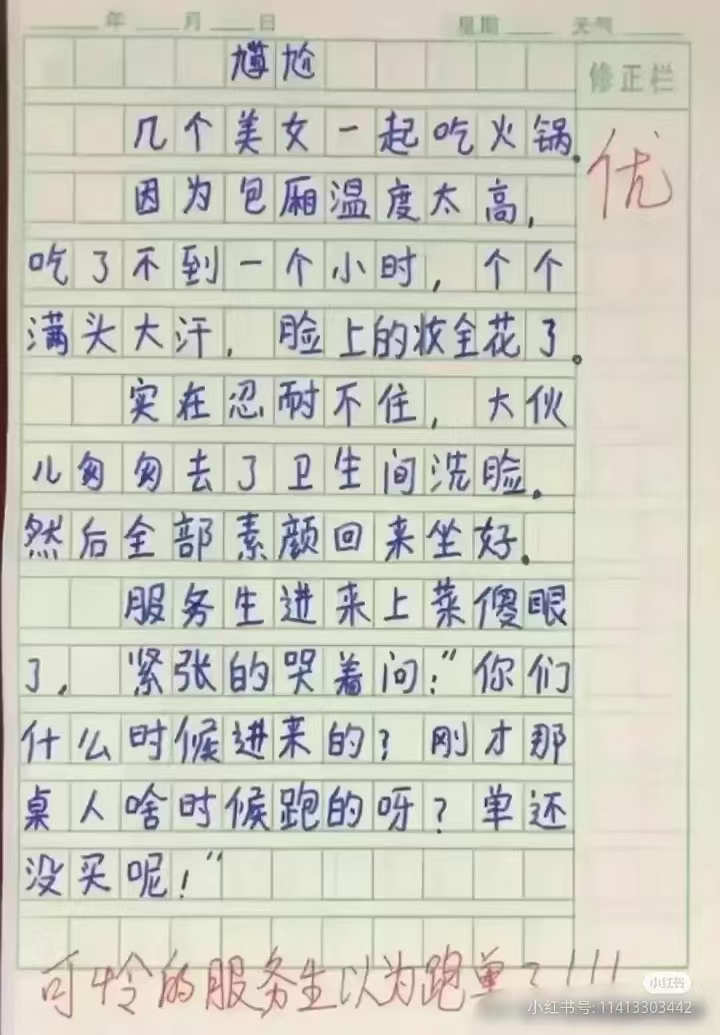 年 月 日 星期 天气
尴尬
修正栏
几个美女一起吃火锅。
优
因为包厢温度太高,
吃了不到一个小时,个个
满头大汗,脸上的妆全花了。
实在忍耐不住,大伙
儿匆匆去了卫生间洗脸.
然后全部素颜回来坐好.
服务生进来上菜傻眼
了,紧张的哭着问:“你们
什么时候进来的?刚才那
桌人啥时候跑的呀?单还
没买呢!”
可怜的服务生以为跑单了!!!
小红书
小红书号: 11413303442